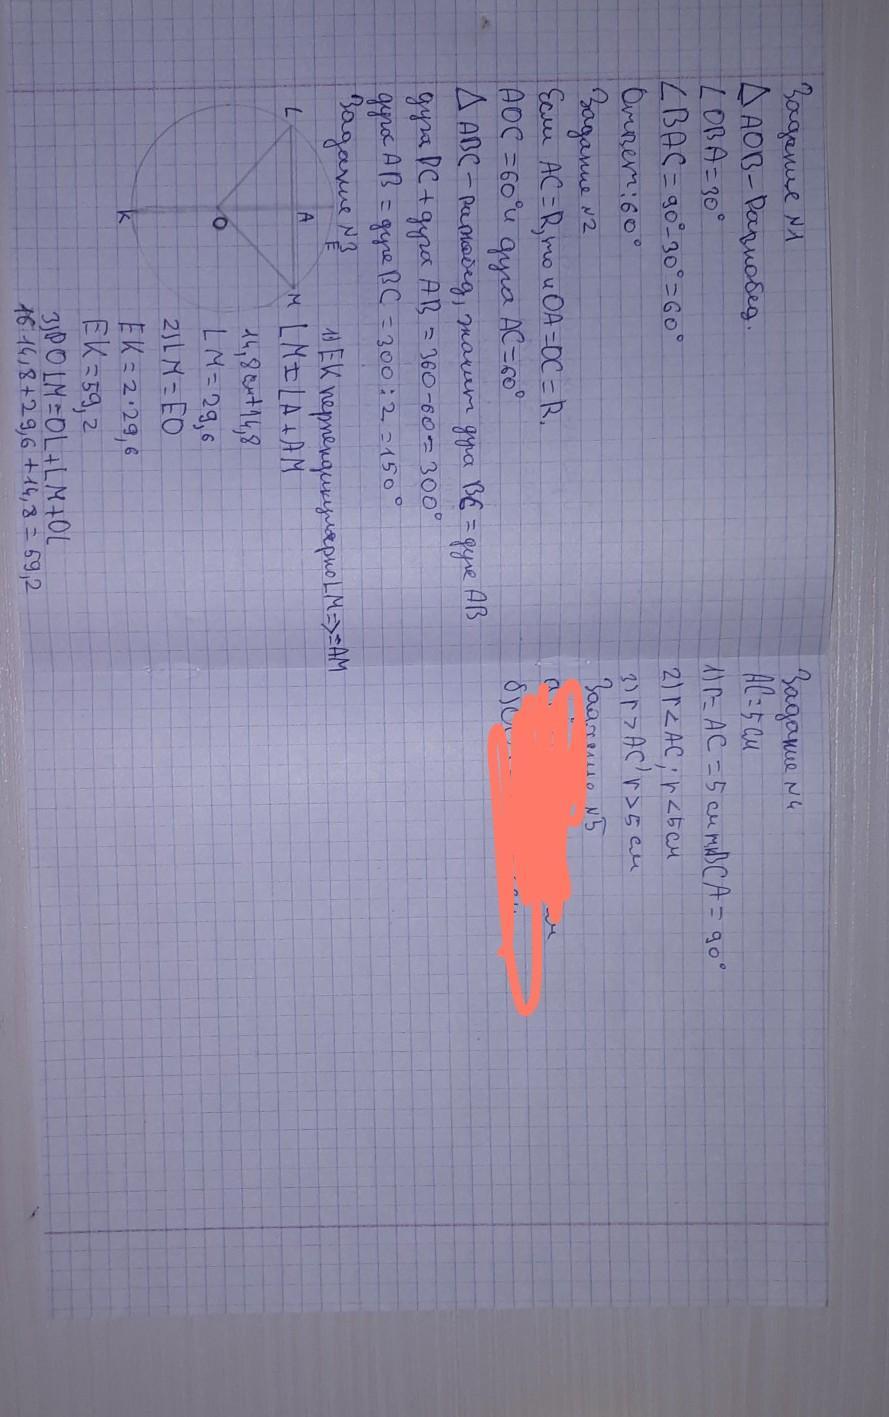 Задание №1
△ AOB - Равнобед.
∠OBA = 30°
∠BAC = 90° - 30° = 60°
Ответ: 60°
Задание №2
Если AC = R, то и OA = OC = R,
AOC = 60° и дуга AC = 60°
△ ABC - равнобед, значит дуга BC = дуге AB
дуга BC + дуга AB = 360 - 60 = 300°
дуга AB = дуге BC = 300 : 2 = 150°
Задание №3
L
A
E
M
O
K
1) EK перпендикулярно LM => = AM
LM = LA + AM
14,8 см + 14,8
LM = 29,6
2) LM = EO
EK = 2 · 29,6
EK = 59,2
3) P OLM = OL + LM + OL
14,8 + 29,6 + 14,8 = 59,2
Задание №4
AC = 5 см
1) r = AC = 5 см BCA = 90°
2) r < AC; r < 5 см
3) r > AC; r > 5 см
Задание №5